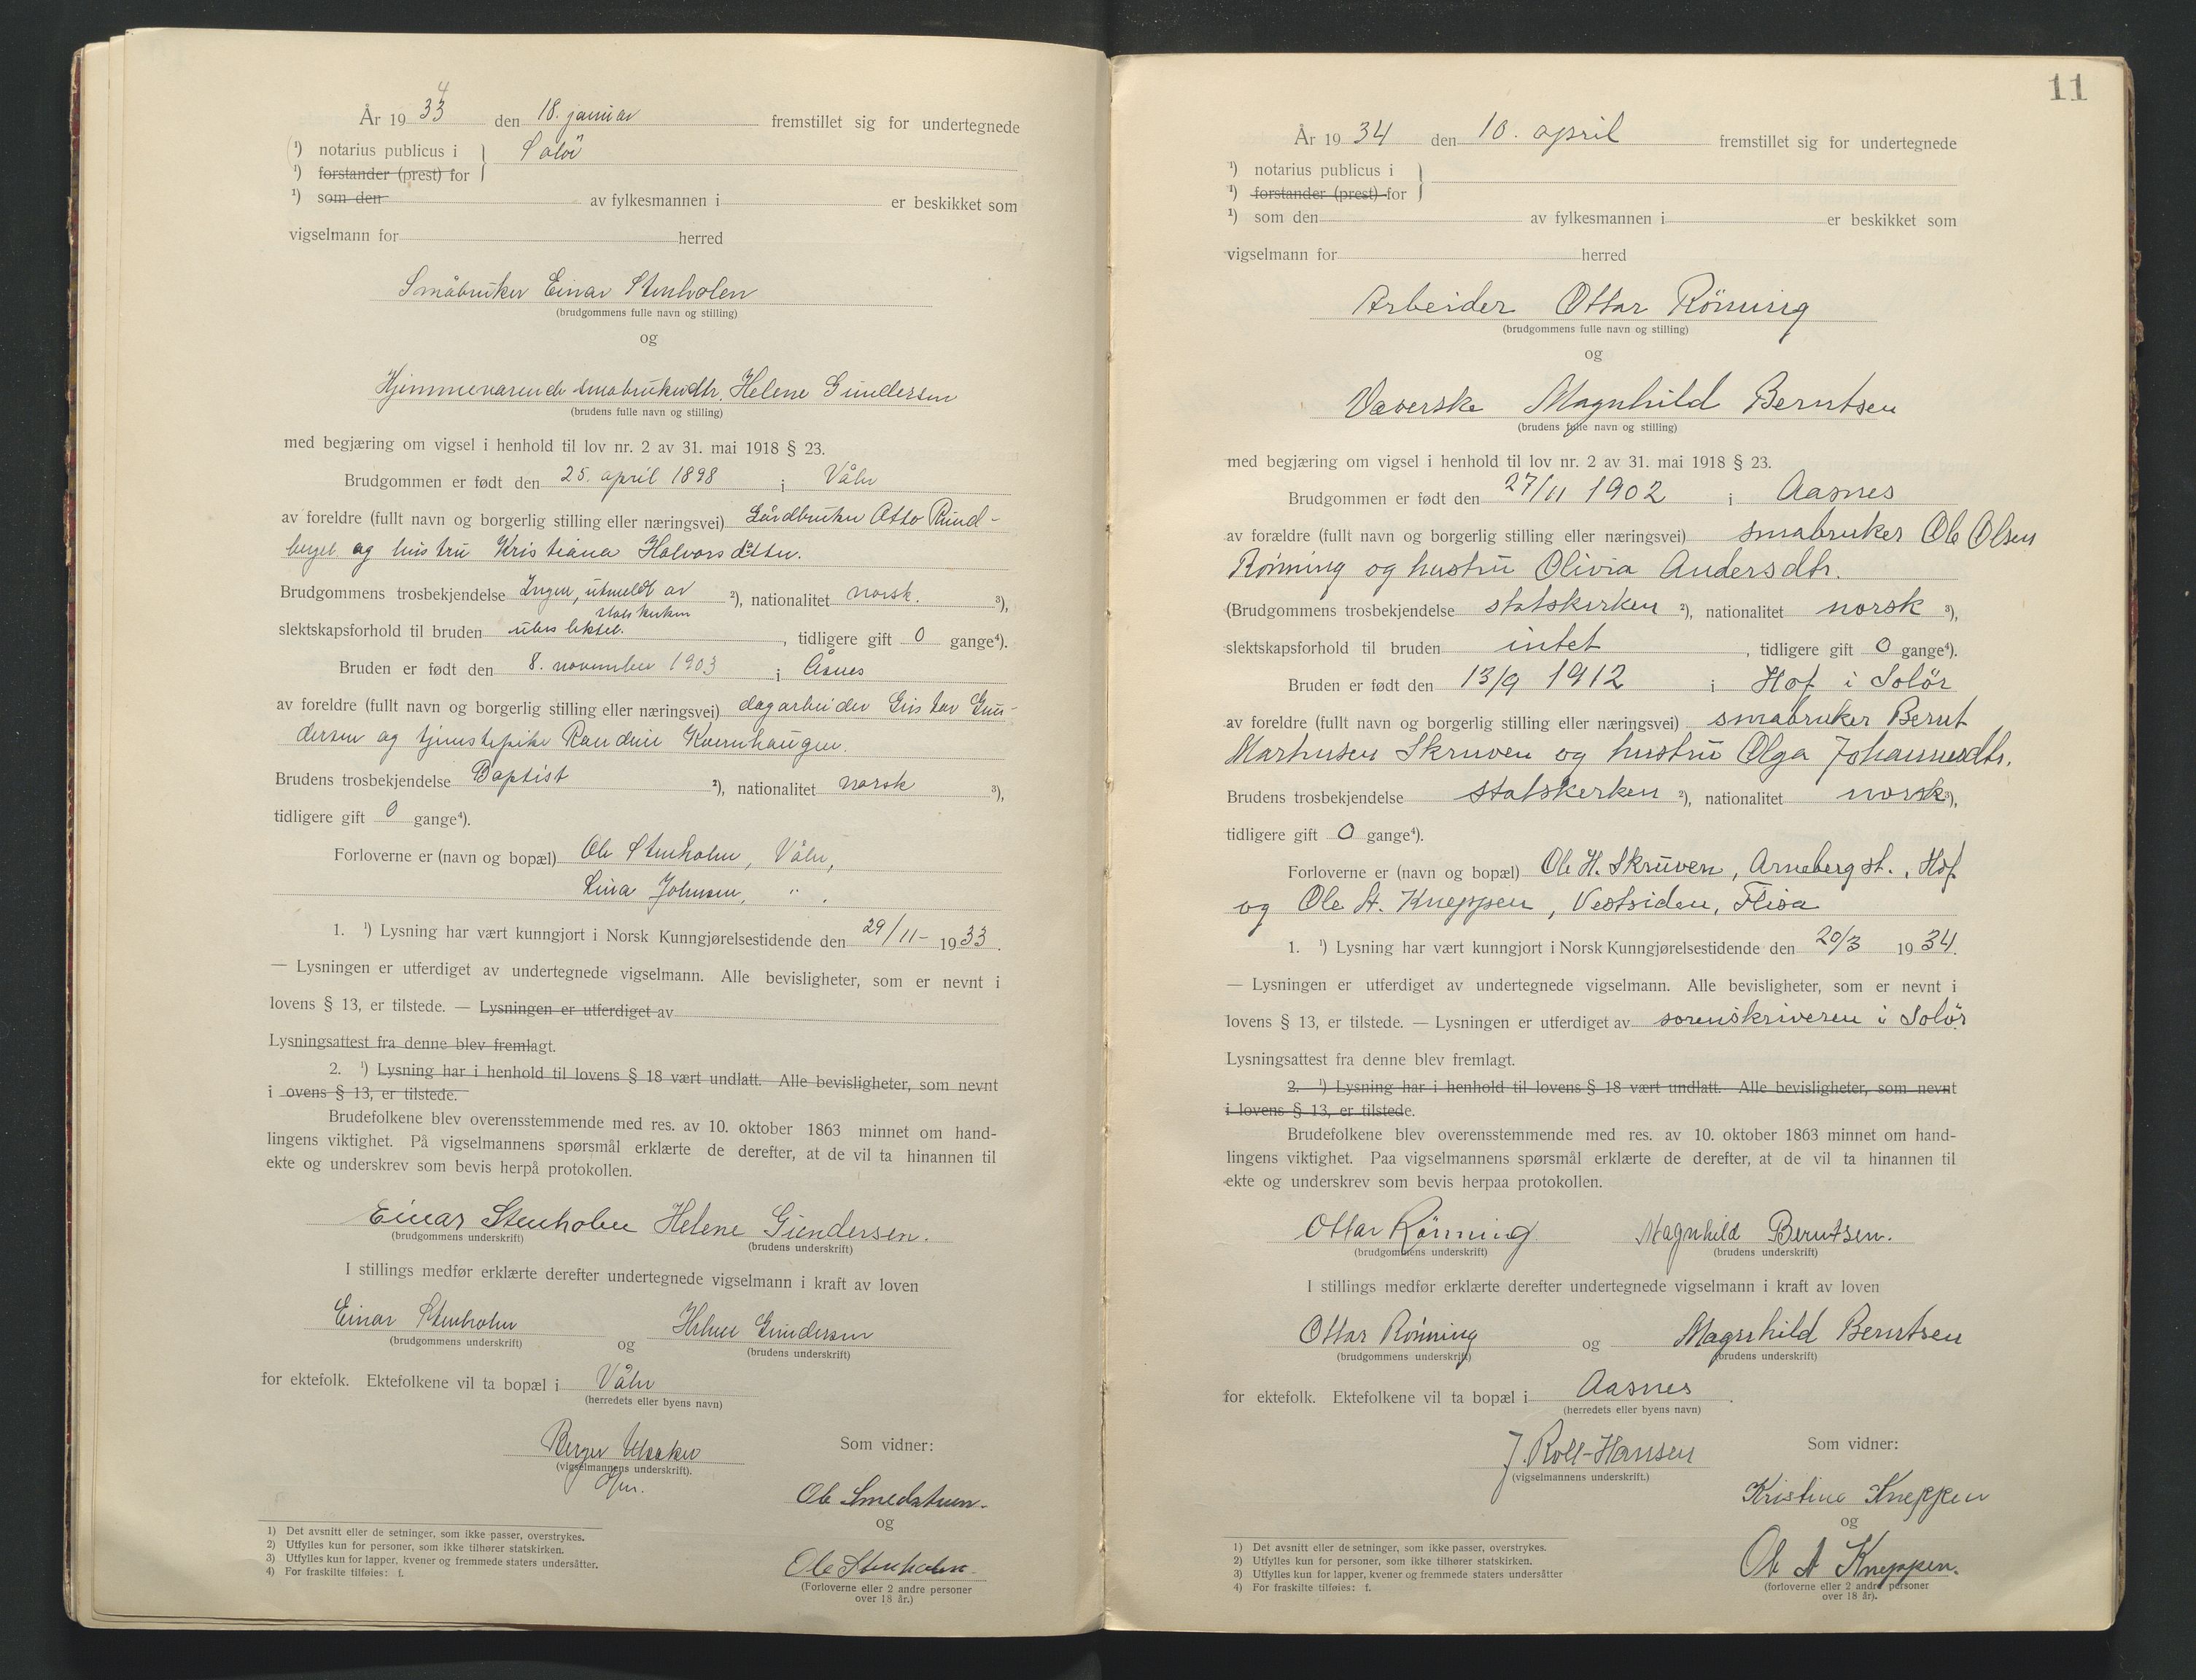 År 1933 4 den 18. januar fremstillet sig for undertegnede
¹) notarius publicus i } Solör
¹) forstander (prest) for
¹) som den av fylkesmannen i er beskikket som
vigselmann for herred
Småbruker Einar Stenholen
(brudgommens fulle navn og stilling)
og
Hjemmeværende småbrukerdtr. Helene Gundersen
(brudens fulle navn og stilling)
med begjæring om vigsel i henhold til lov nr. 2 av 31. mai 1918 § 23.
Brudgommen er født den 25. april 1898 i Våler
av foreldre (fullt navn og borgerlig stilling eller næringsvei) Gårdbruker Otto Rund-
berget og hustru Kristiana Halvorsdatter.
Brudgommens trosbekjendelse Ingen, utmeldt av ²), nationalitet norsk. ³),
statskirken
slektskapsforhold til bruden ubeslektet. , tidligere gift 0 gange⁴).
Bruden er født den 8. november 1903 i Åsnes
av foreldre (fullt navn og borgerlig stilling eller næringsvei) dagarbeider Gustav Gun-
dersen og tjenestepike Randine Kvernhaugen.
Brudens trosbekjendelse Baptist ²), nationalitet norsk ³),
tidligere gift 0 gange⁴).
Forloverne er (navn og bopæl) Ole Stenholen, Våler,
Lina Johnsen, " .
1. ¹) Lysning har vært kunngjort i Norsk Kunngjørelsestidende den 29/11- 1933.
— Lysningen er utferdiget av undertegnede vigselmann. Alle bevisligheter, som er nevnt i
lovens § 13, er tilstede. — Lysningen er utferdiget av
Lysningsattest fra denne blev fremlagt.
2. ¹) Lysning har i henhold til lovens § 18 vært undlatt. Alle bevisligheter, som nevnt
i ovens § 13, er tilstede.
Brudefolkene blev overensstemmende med res. av 10. oktober 1863 minnet om hand-
lingens viktighet. På vigselmannens spørsmål erklærte de derefter, at de vil ta hinannen til
ekte og underskrev som bevis herpå protokollen.
Einar Stenholen Helene Gundersen.
(brudgommens underskrift) (brudens underskrift)
I stillings medfør erklærte derefter undertegnede vigselmann i kraft av loven
Einar Stenholen og Helene Gundersen
(brudgommens underskrift) (brudens underskrift)
for ektefolk. Ektefolkene vil ta bopæl i Våler
(herredets eller byens navn)
Berger Ulsaker
(vigselmannens underskrift).
Som vidner:
Ole Smedstuen.
og
Ole Stenholen.
(Forloverne eller 2 andre personer
over 18 år.)
1) Det avsnitt eller de setninger, som ikke passer, overstrykes.
2) Utfylles kun for personer, som ikke tilhører statskirken.
3) Utfylles kun for lapper, kvener og fremmede staters undersåtter.
4) For fraskilte tilføies: f.
11
År 1934 den 10. april fremstillet sig for undertegnede
¹) notarius publicus i }
¹) forstander (prest) for
¹) som den av fylkesmannen i er beskikket som
vigselmann for herred
Arbeider Ottar Rönning
(brudgommens fulle navn og stilling)
og
Væverske Magnhild Berntsen
(brudens fulle navn og stilling)
med begjæring om vigsel i henhold til lov nr. 2 av 31. mai 1918 § 23.
Brudgommen er født den 27/11 1902 i Aasnes
av forældre (fullt navn og borgerlig stilling eller næringsvei) småbruker Ole Olsen
Rönning og hustru Olivia Andersdtr.
(Brudgommens trosbekjendelse statskirken ²), nationalitet norsk ³),
slektskapsforhold til bruden intet , tidligere gift 0 gange⁴).
Bruden er født den 13/9 1912 i Hof i Solör
av foreldre (fullt navn og borgerlig stilling eller næringsvei) småbruker Bernt
Marhusen Skruven og hustru Olga Johannesdtr.
Brudens trosbekjendelse statskerken ²), nationalitet norsk ³),
tidligere gift 0 gange⁴).
Forloverne er (navn og bopæl) Ole H. Skruven, Arneberg st., Hof
og Ole A. Kneppen, Vestsiden, Flisa
1. ¹) Lysning har vært kunngjort i Norsk Kunngjørelsestidende den 20/3 1934.
— Lysningen er utferdiget av undertegnede vigselmann. Alle bevisligheter, som er nevnt i
lovens § 13, er tilstede. — Lysningen er utferdiget av sorenskriveren i Solör
Lysningsattest fra denne blev fremlagt.
2. ¹) Lysning har i henhold til lovens § 18 vært undlatt. Alle bevisligheter, som nevnt
i lovens § 13, er tilstede.
Brudefolkene blev overensstemmende med res. av 10. oktober 1863 minnet om hand-
lingens viktighet. Paa vigselmannens spørsmål erklærte de derefter, at de vil ta hinannen til
ekte og underskrev som bevis herpaa protokollen.
Ottar Rønning Magnhild Berntsen.
(brudgommens underskrift) (brudens underskrift)
I stillings medfør erklærte derefter undertegnede vigselmann i kraft av loven
Ottar Rönning og Magnhild Berntsen
(brudgommens underskrift) (brudens underskrift)
for ektefolk. Ektefolkene vil ta bopæl i Aasnes.
(herredets eller byens navn)
J. Roll-Hansen
(vigselmannens underskrift.)
Som vidner:
Kristine Kneppen
og
Ole A Kneppen.
(forloverne eller 2 andre personer
over 18 år).
1) Det avsnitt eller de setninger, som ikke passer, overstrykes.
2) Utfylles kun for personer, som ikke tilhører statskirken.
3) Utfylles kun for lapper, kvener og fremmede staters undersåtter
4) For fraskilte tilføies: f.